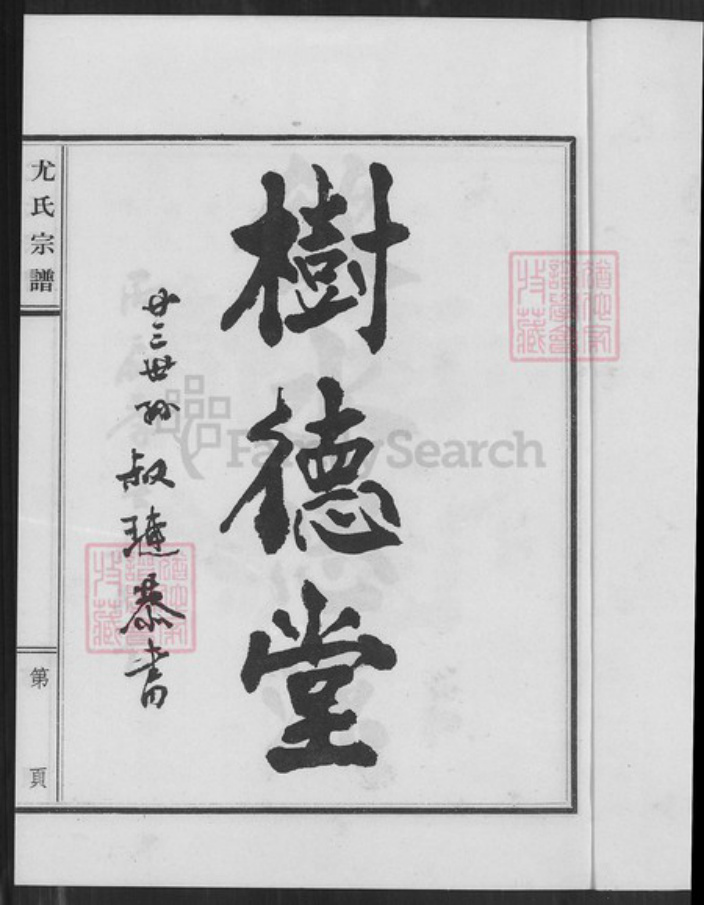 樹德堂
廿三世孫叔璉恭書
尤氏宗譜
第 頁
FamilySearch